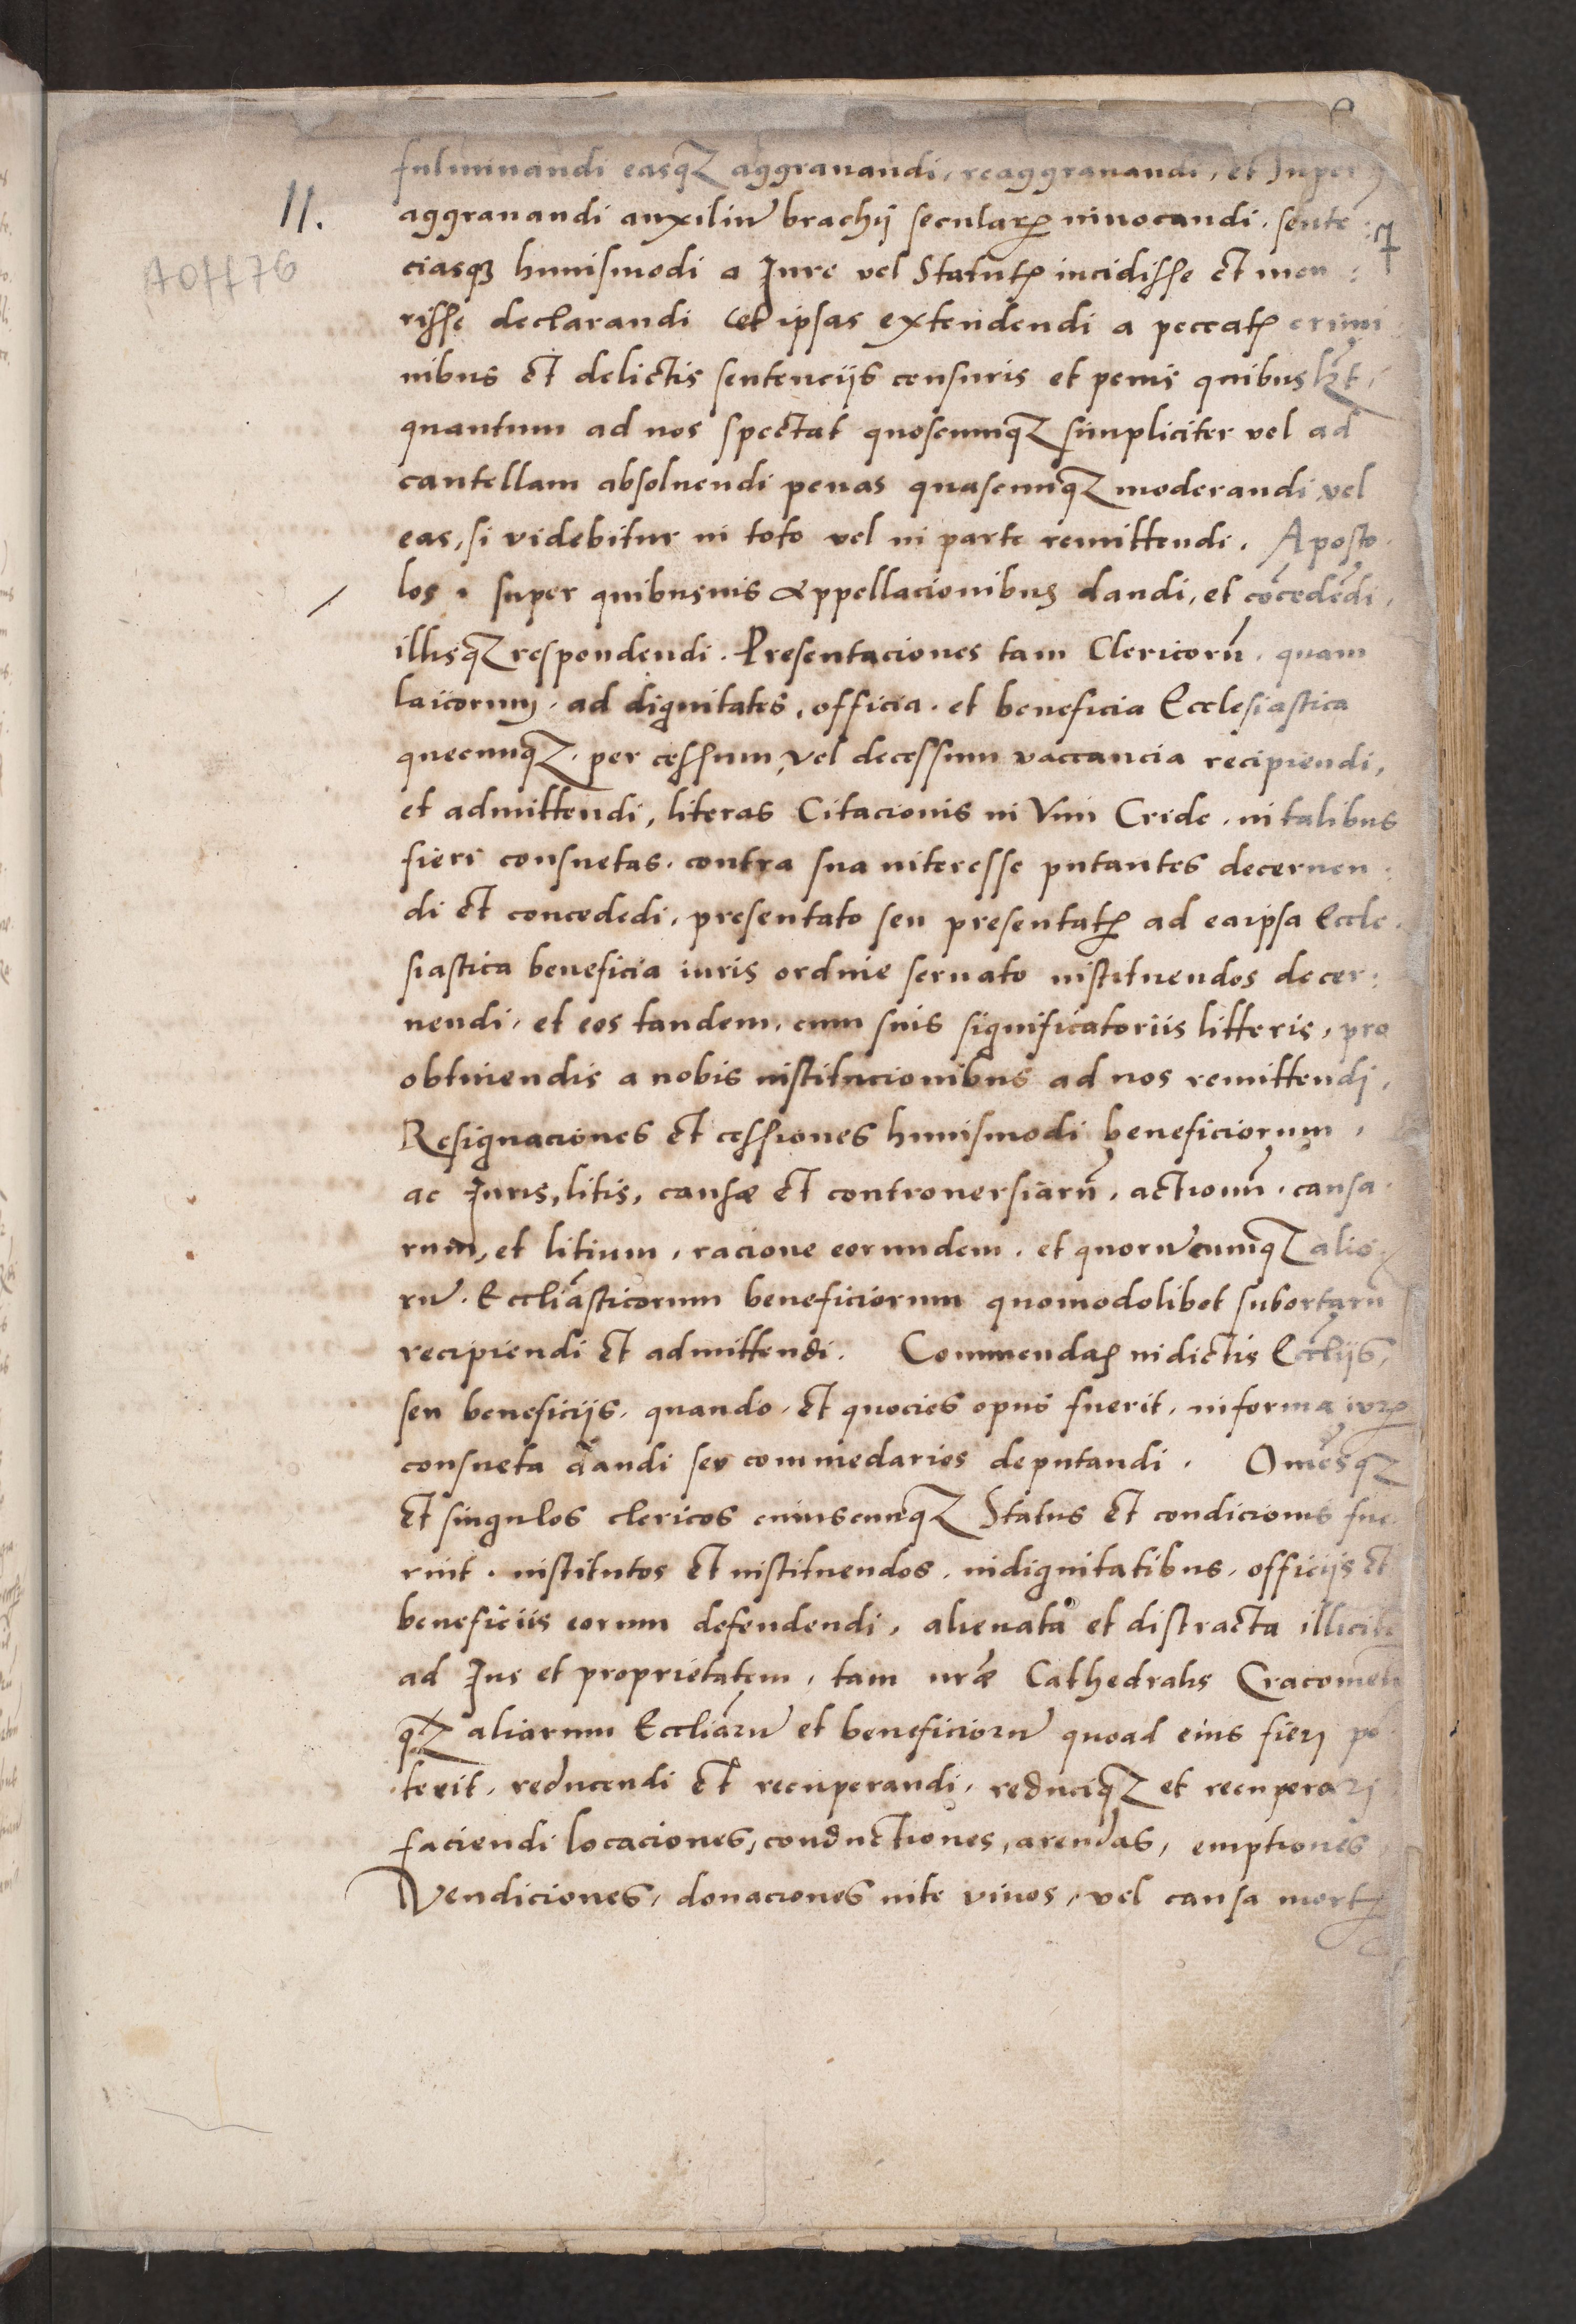 fulminandi easqꝫ aggrauandi, reaggrauandi, et Inper
11.
aggrauandi auxiliū brachij secularꝭ inuocandi. sente :
ciasqꝫ huiusmodi a Jure vel Statutꝭ incidisse et incu :
A0ff76
risse declarandi et ipsas extendendi a peccatꝭ crimi
nibus et delictis sentencijs censuris et penis quibuslꝫt,
quantum ad nos spectat quoscumqꝫ simpliciter vel ad
cautellam absoluendi penas quascumqꝫ moderandi vel
eas, si videbitur in toto vel in parte remittendi. Aposto
los. super quibusuis appellacionibus dandi, et cōcedēdi,
illisqꝫ respondendi. Presentaciones tam Clericorū. quam
laicorum. ad dignitates, officia. et beneficia Ecclesiastica
quecumqꝫ. per cessum, vel decessum vaccancia recipiendi,
et admittendi, literas Citacionis in Vim Cride. in talibus
fieri consuetas. contra sua interesse putantes decernen :
di et concededi, presentato seu presentatꝭ ad ea ipsa Eccle
siastica beneficia iuris ordine seruato instituendos decer :
nendi, et eos tandem, cum suis significatoriis litteris, pro
obtinendis a nobis institucionibus ad nos remittendi,
Resignaciones et cessiones huiusmodi beneficiorum,
ac Juris, litis, causæ et controuersiarū, actionū. causa
rum, et litium, racione eorundem. et quorūcumqꝫ alio
rū. Eccliāsticorum beneficiorum quomodolibet subortarū
recipiendi et admittendi. Commendas in dictis Eccliis,
seu beneficijs. quando. et quocies opus fuerit. in forma iurꝭ
consueta dandi seu commedarios deputandi. Omēsqꝫ
et singulos clericos cuiuscumqꝫ Status et condicionis fue
rint. institutos et instituendos. in dignitatibus, officijs et
beneficiis eorum defendendi, alienata et distracta illicite
ad Jus et proprietatem, tam nrāe Cathedralis Cracouien
qꝫ aliarum Eccliārū et beneficiorū quoad eius fieri po
terit. reducendi et recuperandi. reduciqꝫ et recuperari
faciendi locaciones, conductiones, arendas, emptiones,
Vendiciones, donaciones inte viuos, vel causa mortꝭ